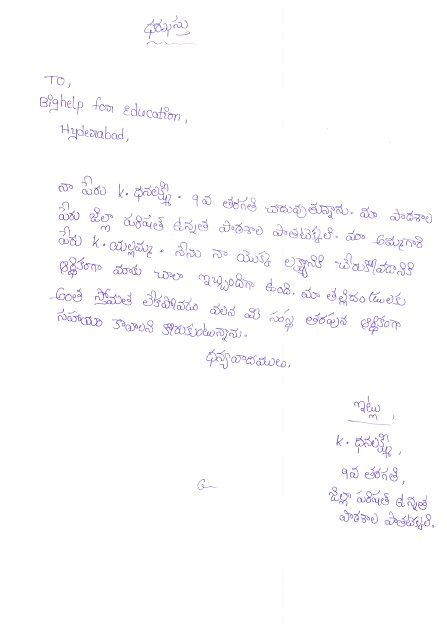 దరఖాస్తు
TO,
Bighelp for Education,
Hyderabad,
నా పేరు K. ధనలక్ష్మి. 9వ తరగతి చదువుతున్నాను. మా పాఠశాల
పేరు జిల్లా పరిషత్ ఉన్నత పాఠశాల పాతటెక్కలి. మా అమ్మగారి
పేరు K. యల్లమ్మ. నేను నా యొక్క లక్ష్యానికి చేరుకోవడానికి
ఆర్థికంగా మాకు చాలా ఇబ్బందిగా ఉంది. మా తల్లిదండ్రులకు
అంత స్తోమత లేకపోవడం వలన మీ సంస్థ తరపున ఆర్థికంగా
సహాయం కావాలని కోరుకుంటున్నాను.
ధన్యవాదములు.
ఇట్లు,
K. ధనలక్ష్మి,
9వ తరగతి,
జిల్లా పరిషత్ ఉన్నత
పాఠశాల పాతటెక్కలి.